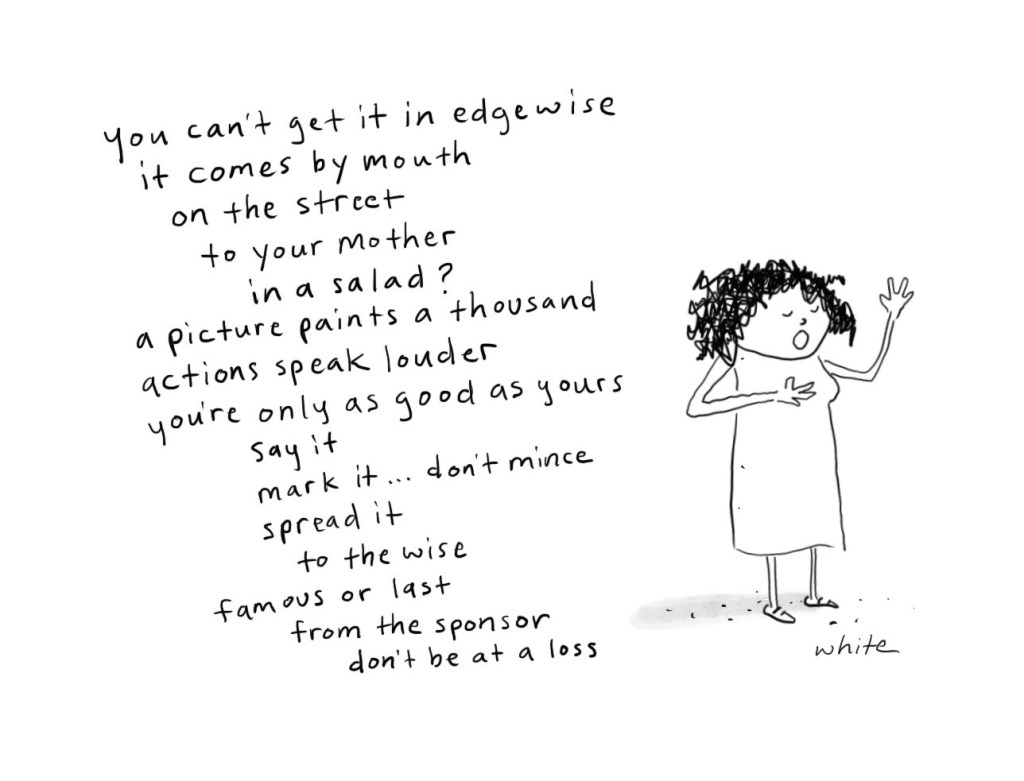 you can't get it in edgewise
it comes by mouth
on the street
to your mother
in a salad?
a picture paints a thousand
actions speak louder
you're only as good as yours
say it
mark it... don't mince
spread it
to the wise
famous or last
from the sponsor
don't be at a loss
white